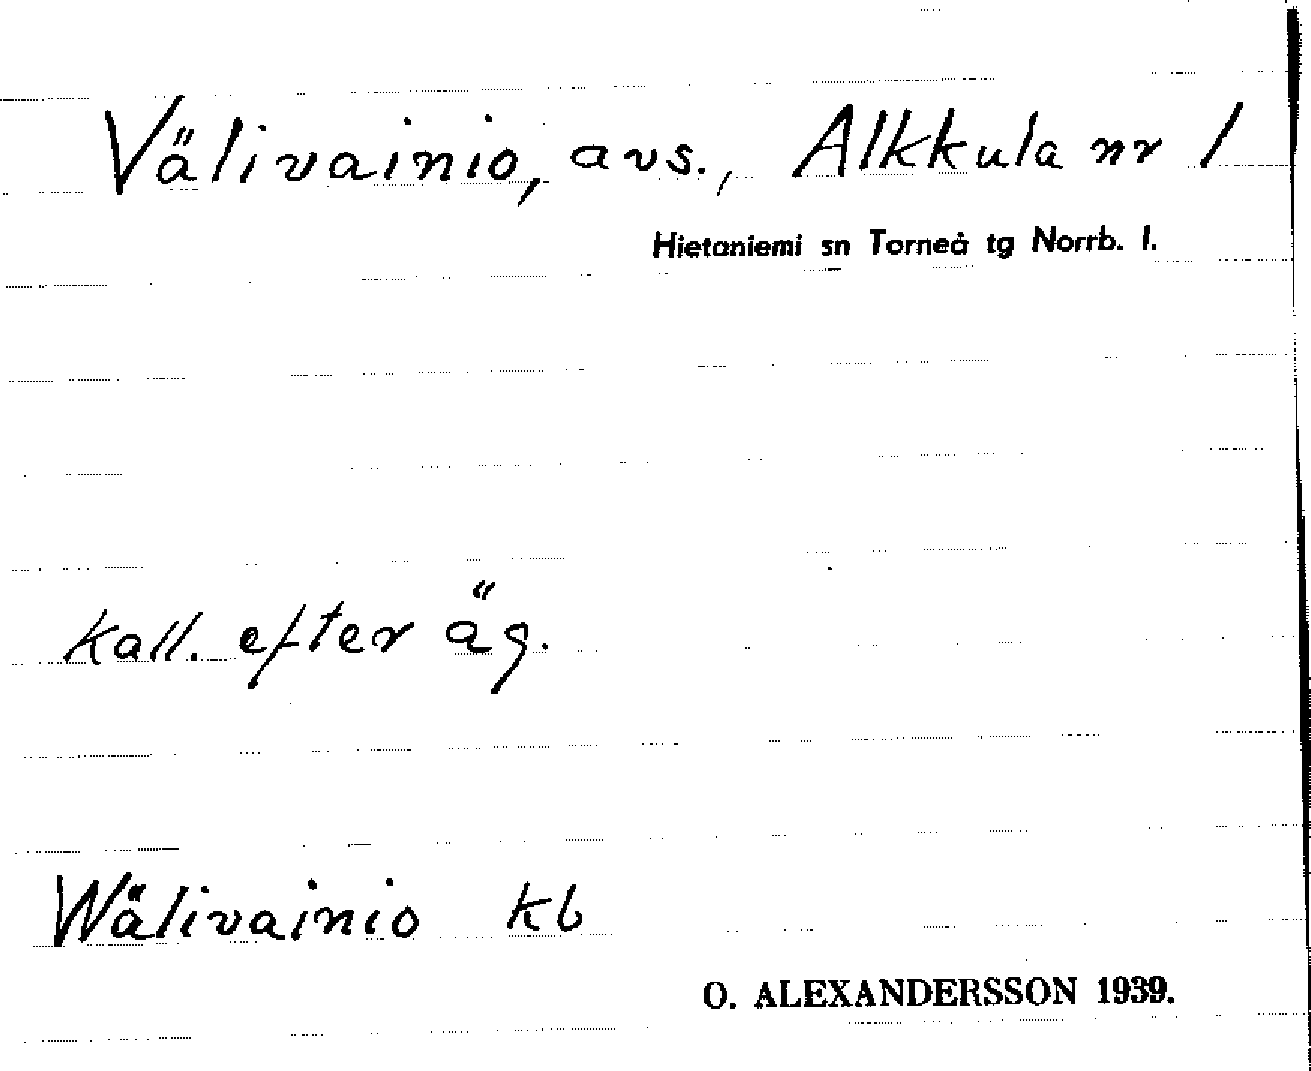 Välivainio, avs., Alkkula nr 1
Hietaniemi sn Torneå tg Norrb. l.
kall. efter äg.
Wälivainio kb
O. ALEXANDERSSON 1939.